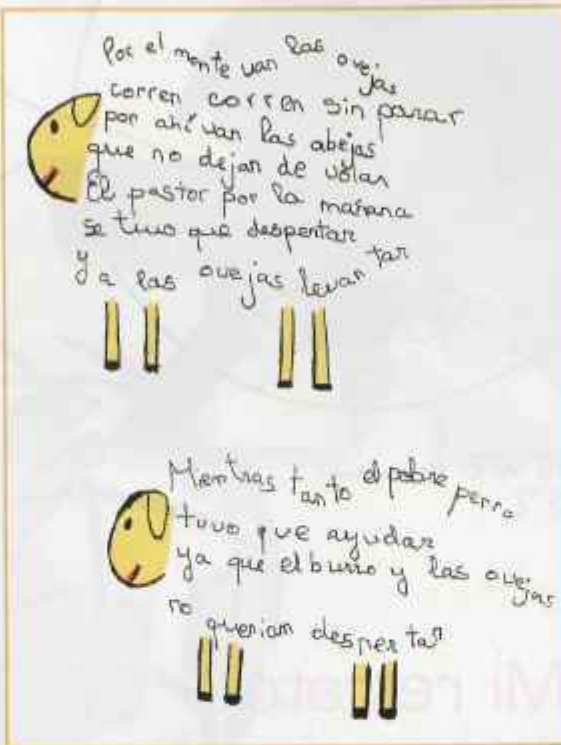 Por el monte van las ovejas
corren corren sin parar
por ahí van las abejas
que no dejan de volar
El pastor por la mañana
se tuvo que despertar
y a las ovejas levantar
Mientras tanto el pobre perro
tuvo que ayudar
ya que el burro y las ovejas
no querian despertar
Mi retrato